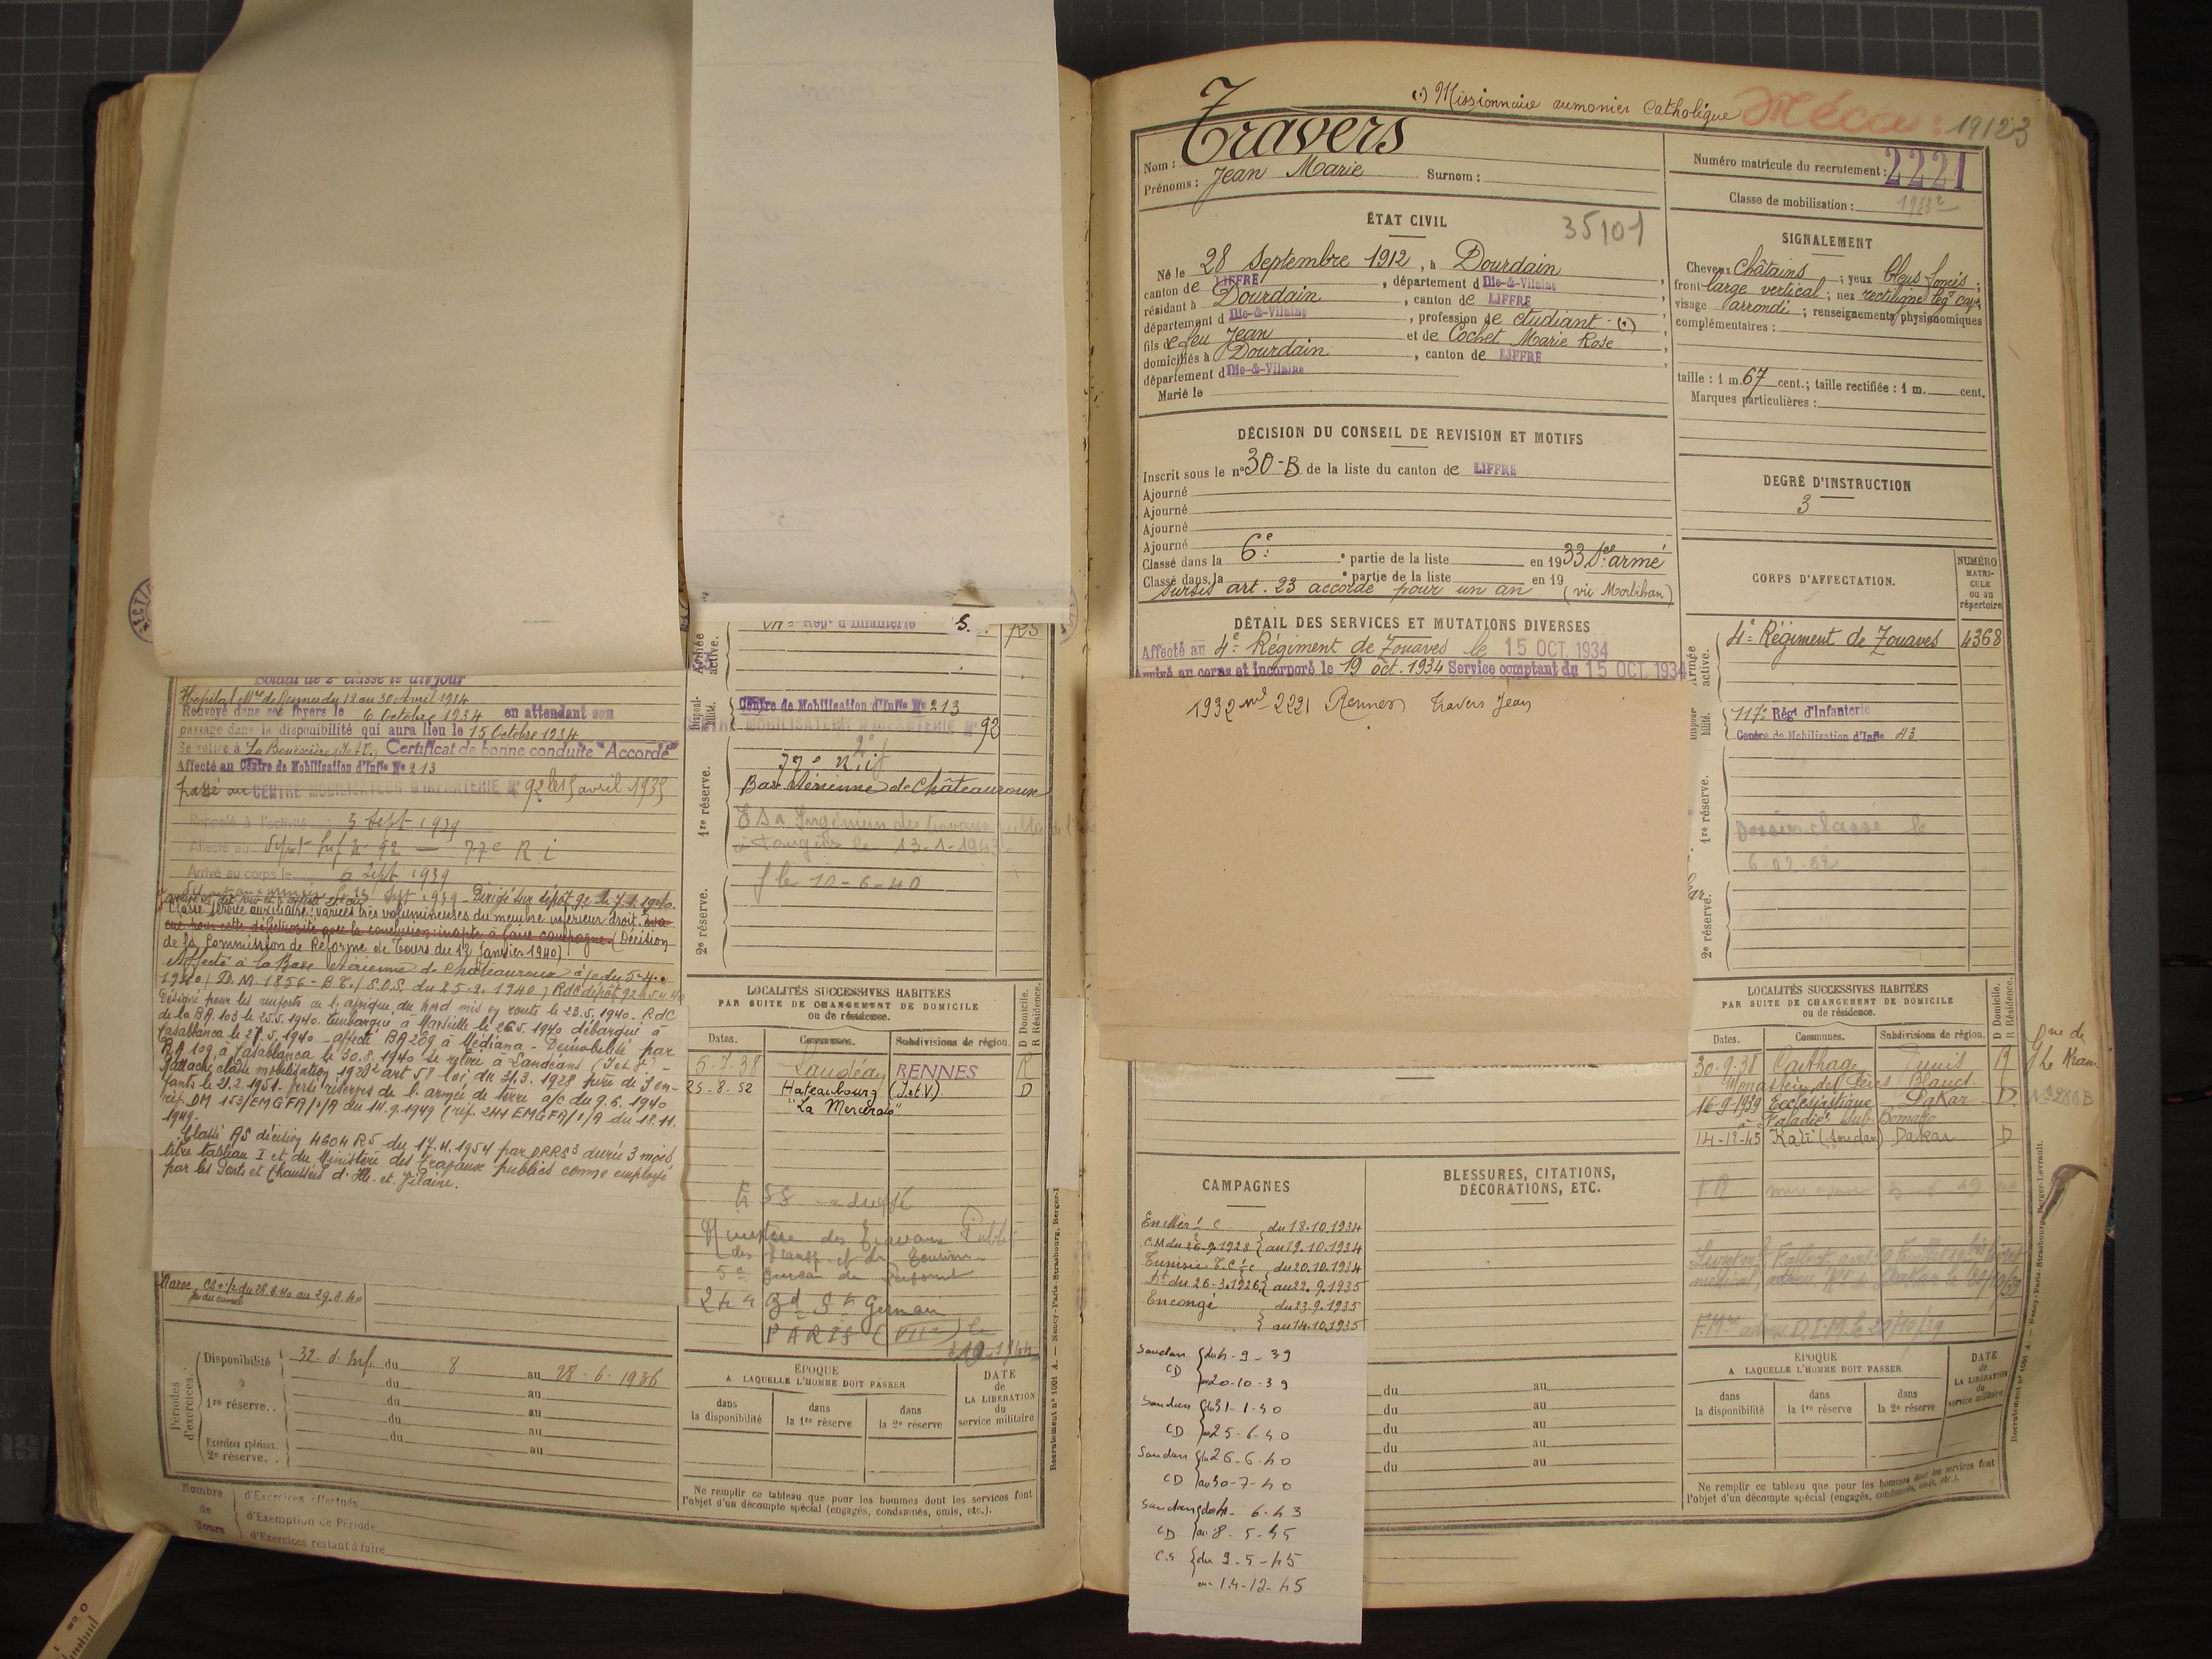 Soldat de 2e classe le dit jour
Hopital Mre de Rennes du 18 au 30 Avril 1934
Renvoyé dans ses foyers le 6 Octobre 1934 en attendant son
passage dans la disponibilité qui aura lieu le 15 Octobre 1934
Se retire à La Bouëxière (I et V) Certificat de bonne conduite "Accordé"
Affecté au Centre de Mobilisation d'Infie No 213
passé au CENTRE MOBILISATEUR D'INFANTERIE No 92 le 15 avril 1935
Rappelé à l'activité 3 Sept 1939
Affecté au Dépôt Inf No 92 — 77e R i
Arrivé au corps le 6 Sept 1939
Dirigé sur dépôt 92 le 7.1.1940.
Classé service auxiliaire: varices très volumineuses du membre inférieur droit.
inapte à faire campagne. (Décision
de la Commission de Réforme de Tours du 12 Janvier 1940)
Affecté à la Base Aérienne de Châteauroux à/c du 5-4-
1940 (D.M. 1856-B.T./S.O.S. du 25.2.1940) RdC dépôt 92
Désigné pour les renforts de l'afrique du Nord mis en route le 23.5.1940. RdC
de la BA 103 le 25.5.1940. Embarqué à Marseille le 26.5.1940 débarqué à
Casablanca le 27.5.1940 - affecté BA 209 à Médiana - Démobilisé par
BA 109 à Casablanca le 30.8.1940 se retire à Landéans (I et V) -
Rattaché classe mobilisation 1928² art 58 loi du 31.3.1928 père de 3 en-
fants le 21.2.1951. Versé réserves de l'armée de terre a/c du 9.6.1940
réf. DM 153/EMGFA/1/A du 14.9.1949 (réf. 241 EMGFA/1/A du 18.11.
1949.
Classé AS décision 4604 RS du 17.11.1954 par DRRS3 durée 3 mois
titre tableau I et du Ministère des Travaux publics comme employé
par les Ponts et Chaussées d'Ille-et-Vilaine.
Maroc, CS + /p du 28.6.40 au 29.8.40
Périodes d'exercices.
Disponibilité 32. d. Inf. du 8 au 28-6-1936
du au
1re réserve.. du au
du au
Exercices spéciaux. du au
2e réserve.. au
Nombre de Jours
d'Exercices effectués
d'Exemption de Période
d'Exercices restant à faire
Armée active.
Rég. d'Infanterie S. 725
Disponibilité.
Centre de Mobilisation d'Infie No 213
MOBILISATEUR D'INFANTERIE No 92
1re réserve.
77e R.i.f
Base Aérienne de Châteauroux
ESA Ingénieur des travaux publics de l'
à Fougères le 13-1-1943
f le 10-6-40
2e réserve.
LOCALITÉS SUCCESSIVES HABITÉES
PAR SUITE DE CHANGEMENT DE DOMICILE
ou de résidence.
D Domicile.
R Résidence.
Dates. Communes. Subdivisions de région.
5.7.38 Landéan RENNES R
25-8-52 Hateaubourg (I.et.V.) D
"La Mercerais"
Ministère des Travaux Publics
des Transp. et du Tourisme
5e Bureau du Personnel
244 Bd St Germain
PARIS (VIIe) le
ÉPOQUE
A LAQUELLE L'HOMME DOIT PASSER
dans la disponibilité
dans la 1re réserve
dans la 2e réserve
DATE de LA LIBERATION du service militaire
Ne remplir ce tableau que pour les hommes dont les services font
l'objet d'un décompte spécial (engagés, condamnés, omis, etc.).
Recrutement no 1001 A. — Nancy-Paris-Strasbourg, Berger-L
(.) Missionnaire aumonier Catholique
Méca: 19123
Nom : Travers
Prénoms : Jean Marie Surnom :
Numéro matricule du recrutement : 2221
Classe de mobilisation : 1933²
ÉTAT CIVIL
35101
Né le 28 Septembre 1912, à Dourdain
canton de LIFFRÉ, département d Ille-&-Vilaine,
résidant à Dourdain, canton de LIFFRÉ
département d Ille-&-Vilaine, profession de étudiant - (.)
fils de feu Jean et de Cochet Marie Rose
domiciliés à Dourdain, canton de LIFFRÉ
département d Ille-&-Vilaine
Marié le
SIGNALEMENT
Cheveux Châtains ; yeux bleus foncés ;
front large vertical ; nez rectiligne légt cave
visage arrondi ; renseignements physionomiques
complémentaires :
taille : 1 m. 67 cent.; taille rectifiée : 1 m. cent.
Marques particulières :
DÉCISION DU CONSEIL DE REVISION ET MOTIFS
Inscrit sous le no 30-B de la liste du canton de LIFFRÉ
Ajourné
Ajourné
Ajourné
Ajourné
Classé dans la 6e partie de la liste en 1933 Sce armé
Classé dans la e partie de la liste en 19
Sursis art. 23 accordé pour un an (vu Morbihan)
DEGRÉ D'INSTRUCTION
3
DÉTAIL DES SERVICES ET MUTATIONS DIVERSES
Affecté au 4e Régiment de Zouaves le 15 OCT. 1934
Arrivé au corps et incorporé le 19 oct. 1934 Service comptant du 15 OCT. 1934
1932 no 2221 Rennes Travers Jean
CORPS D'AFFECTATION.
NUMÉRO MATRICULE ou au répertoire
Armée active.
4e Régiment de Zouaves 4368
117e Régt d'Infanterie
Centre de Mobilisation d'Infie 43
1re réserve.
Dossier classé le
6-02-62
2e réserve.
LOCALITÉS SUCCESSIVES HABITÉES
PAR SUITE DE CHANGEMENT DE DOMICILE
ou de résidence.
D Domicile.
R Résidence.
Dates. Communes. Subdivisions de région.
30-9-38 Carthage Tunis R
Monastère des Pères Blancs
16-9-1939 Ecclésiastique Dakar D.
à Faladié Sub. Bamako
14-12-45 Kati (Soudan) Dakar D
Rue de
Le Kram
CAMPAGNES
En Mer du 18.10.1934
C.M du 26.9.1928 au 19.10.1934
Tunisie T.C du 20.10.1934
Dt du 26-3.1926 au 22.9.1935
En congé du 23.9.1935
au 14.10.1935
Soudan du 4-9-39
CD au 20-10-39
Soudan du 31-1-40
CD au 25-6-40
Soudan du 26-6-40
CD au 30-7-40
Soudan du 4-6-43
CD au 8-5-45
C.S du 9-5-45
au 14-12-45
BLESSURES, CITATIONS,
DÉCORATIONS, ETC.
du au
du au
du au
du au
du au
ÉPOQUE
A LAQUELLE L'HOMME DOIT PASSER
dans la disponibilité
dans la 1re réserve
dans la 2e réserve
DATE de LA LIBERATION du service militaire
Ne remplir ce tableau que pour les hommes dont les services font
l'objet d'un décompte spécial (engagés, condamnés, omis, etc.).
Recrutement no 1001 A. — Nancy-Paris-Strasbourg, Berger-Levrault.